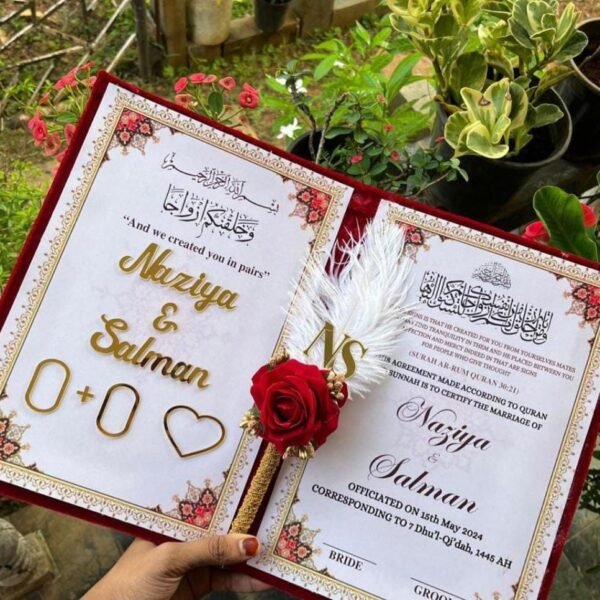 بسم الله الرحمن الرحيم
وَخَلَقْنَاكُمْ أَزْوَاجًا
“And we created you in pairs”
Naziya
&
Salman
0 + 0
NS
IS THAT HE CREATED FOR YOU FROM YOURSELVES MATES
FIND TRANQUILITY IN THEM AND HE PLACED BETWEEN YOU
AND MERCY. INDEED IN THAT ARE SIGNS
FOR PEOPLE WHO GIVE THOUGHT
(SURAH AR-RUM QURAN 30:21)
AGREEMENT MADE ACCORDING TO QURAN
SUNNAH IS TO CERTIFY THE MARRIAGE OF
Naziya
&
Salman
OFFICIATED ON 15th May 2024
CORRESPONDING TO 7 Dhu'l-Qi'dah, 1445 AH
BRIDE